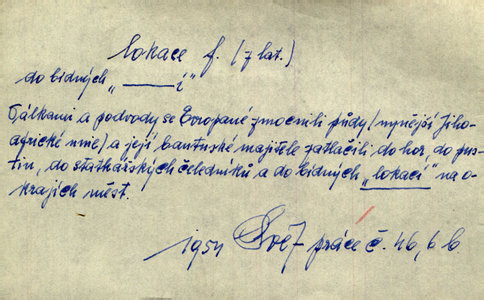 lokace f. (z lat.)
do bídných „——í"
Válkami a podvody se Evropané zmocnili půdy (nynější Jiho-
africké unie) a její bantuské majitele zatlačili do hor, do pus-
tin, do statkářských čeledníků a do bídných „lokací" na o-
krajích měst.
1954 Svět práce č. 46, 6 b.